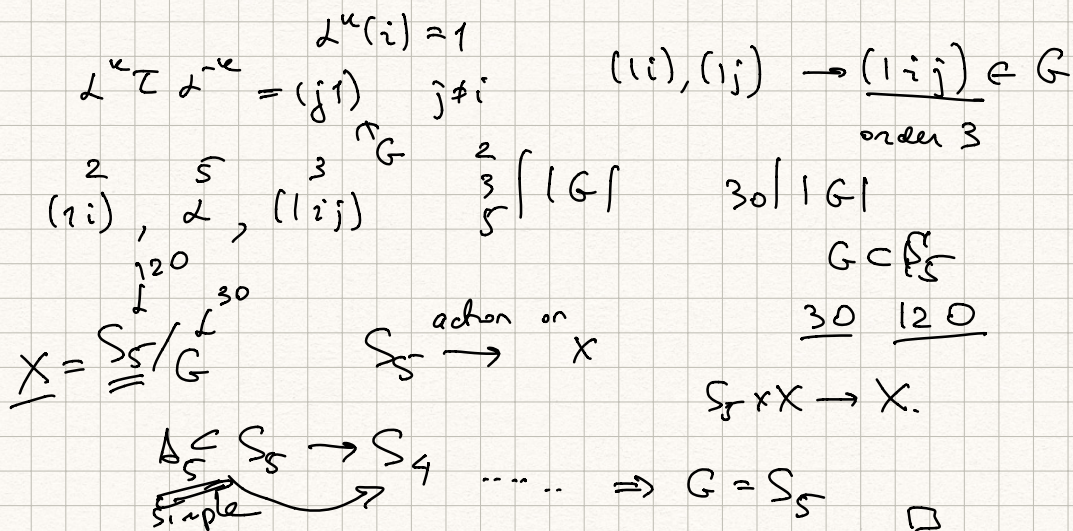 α^k(i) = 1
α^k τ α^{-k} = (j1) j ≠ i
↖G
(1i), (1j) → (1ij) ∈ G
order 3
2 5 3
(1i), α, (1ij)
2
3
5 | |G|
30 | |G|
G ⊂ S_5
30 120
120
30
X = S_5/G
S_5 action on → X
S_5 × X → X.
A_5 ⊂ S_5 → S_4 ...... ⇒ G = S_5
simple
□